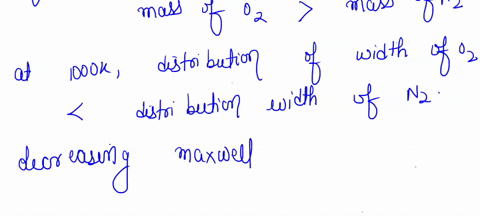 mass of O2 > mass of N2
at 1000K, distribution of width of O2
< distribution width of N2.
decreasing maxwell